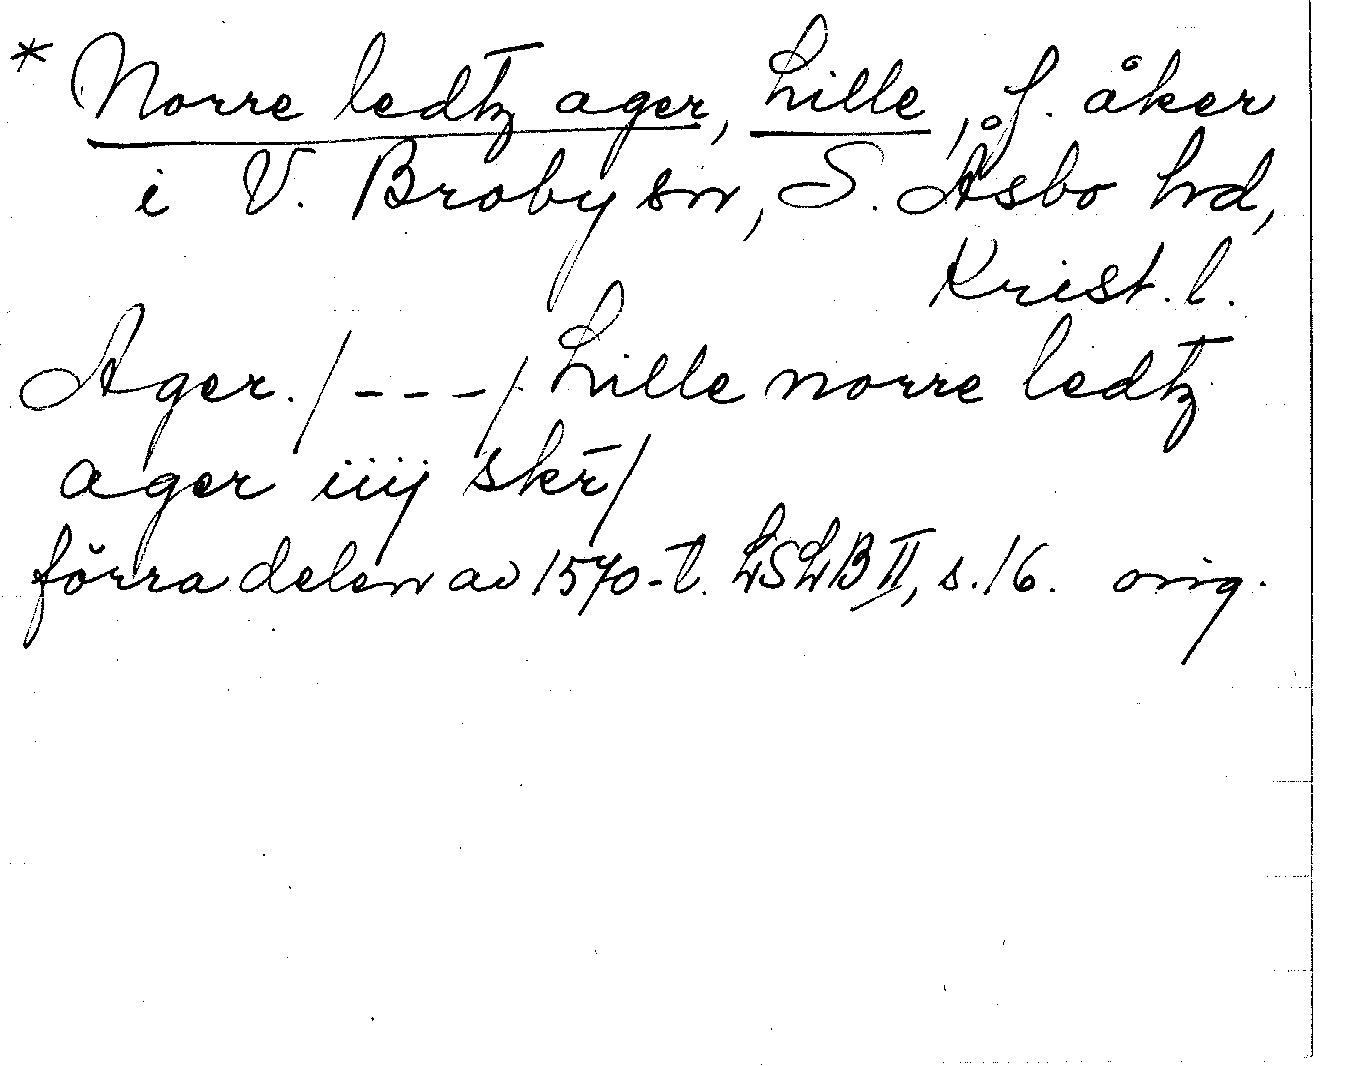 * Norre ledtz ager, Lille, f. åker
i V. Broby sn, S. Åsbo hd,
Krist. l.
Ager. /---/ Lille norre ledtz
ager iiij skr̄/
förra delen av 1570-t. LSLB II, s. 16. orig.